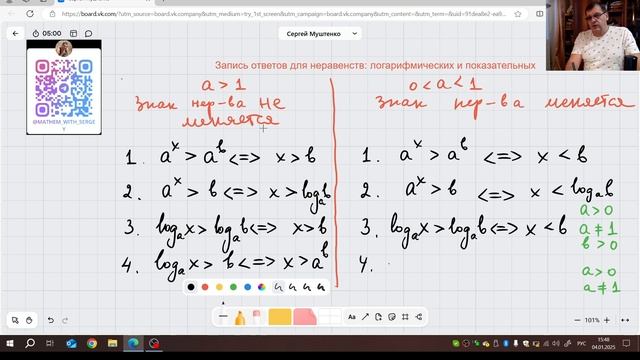 https://board.vk.com/?utm_source=board.vk.com&utm_medium=try_1st_screen&utm_campaign=board.vk.com&utm_content=&utm_term=
05:00
Сергей Муштенко
@MATHEM_WITH_SERGEY
Запись ответов для неравенств: логарифмических и показательных
a > 1
Знак нер-ва не
меняется
1. aˣ > aᵇ <=> x > b
2. aˣ > b <=> x > logₐb
3. logₐx > logₐb <=> x > b
4. logₐx > b <=> x > aᵇ
0 < a < 1
Знак нер-ва меняется
1. aˣ > aᵇ <=> x < b
2. aˣ > b <=> x < logₐb
a > 0
a ≠ 1
b > 0
3. logₐx > logₐb <=> x < b
4.
a > 0
a ≠ 1
Aa
101%
РУС
15:48
04.01.2025